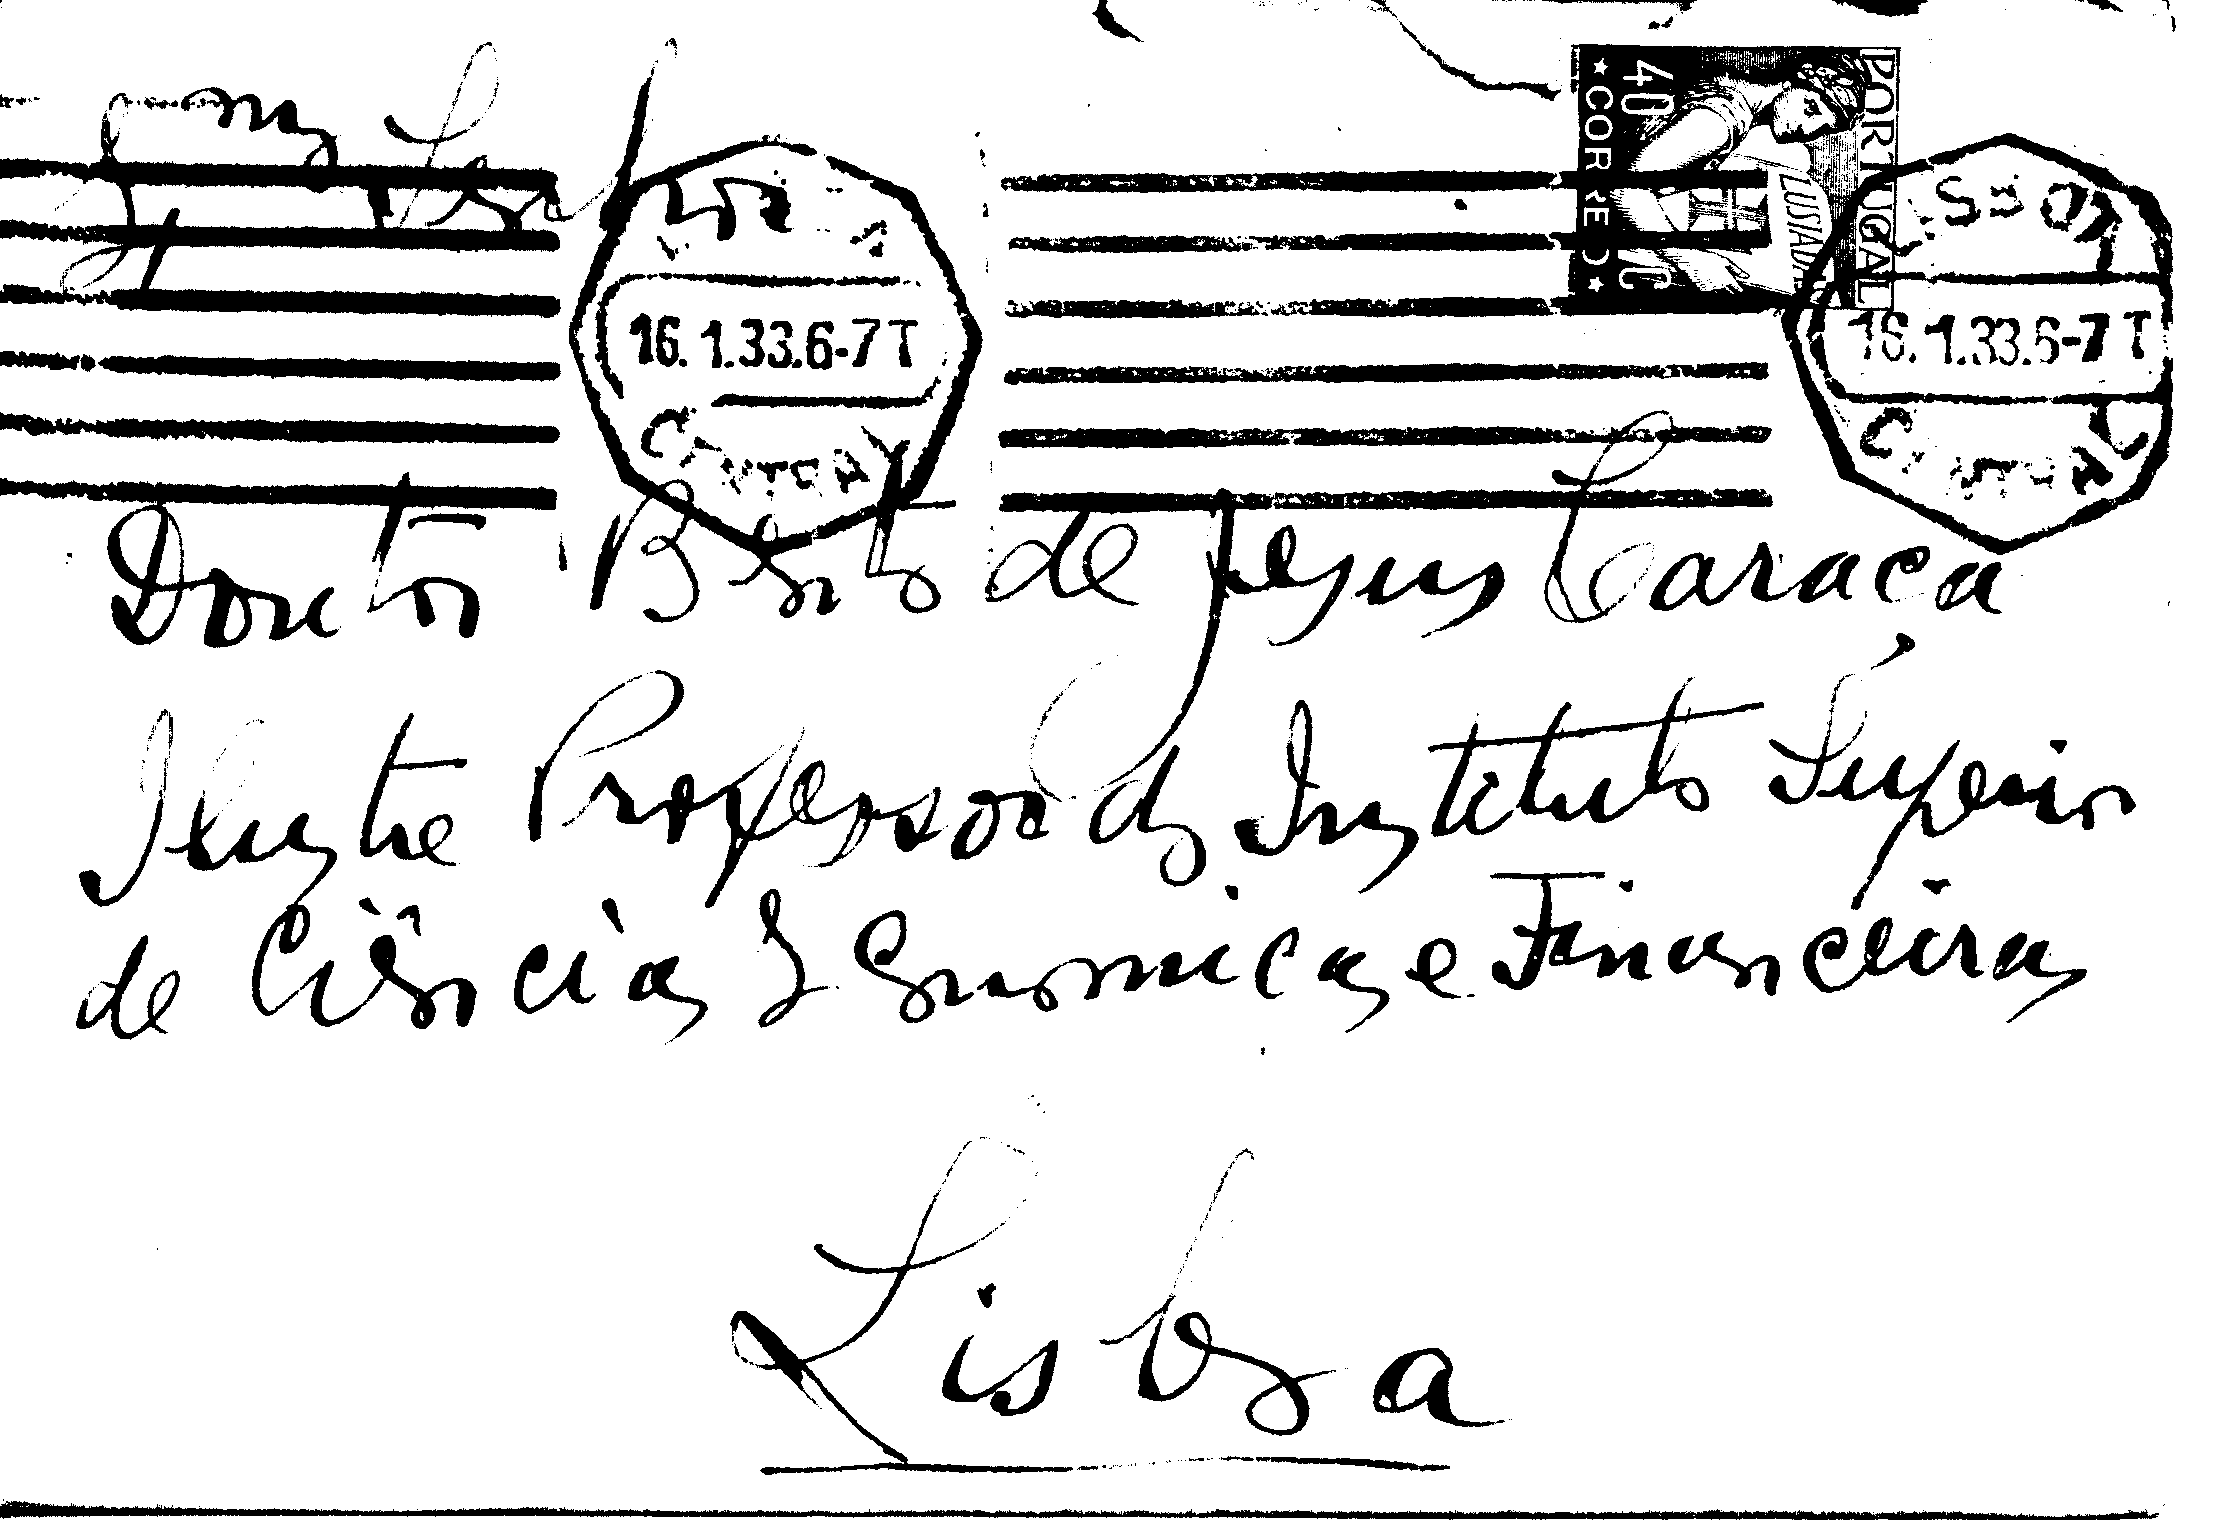 PORTUGAL
40 C
★ CORREIO ★
LUSIADAS
LISBOA
16.1.33.6-7 T
CENTRAL
16.1.33.6-7 T
CENTRAL
Doutor Bento de Jesus Caraça
Ilustre Professor do Instituto Superior
de Ciências Economicas e Financeiras
Lisboa